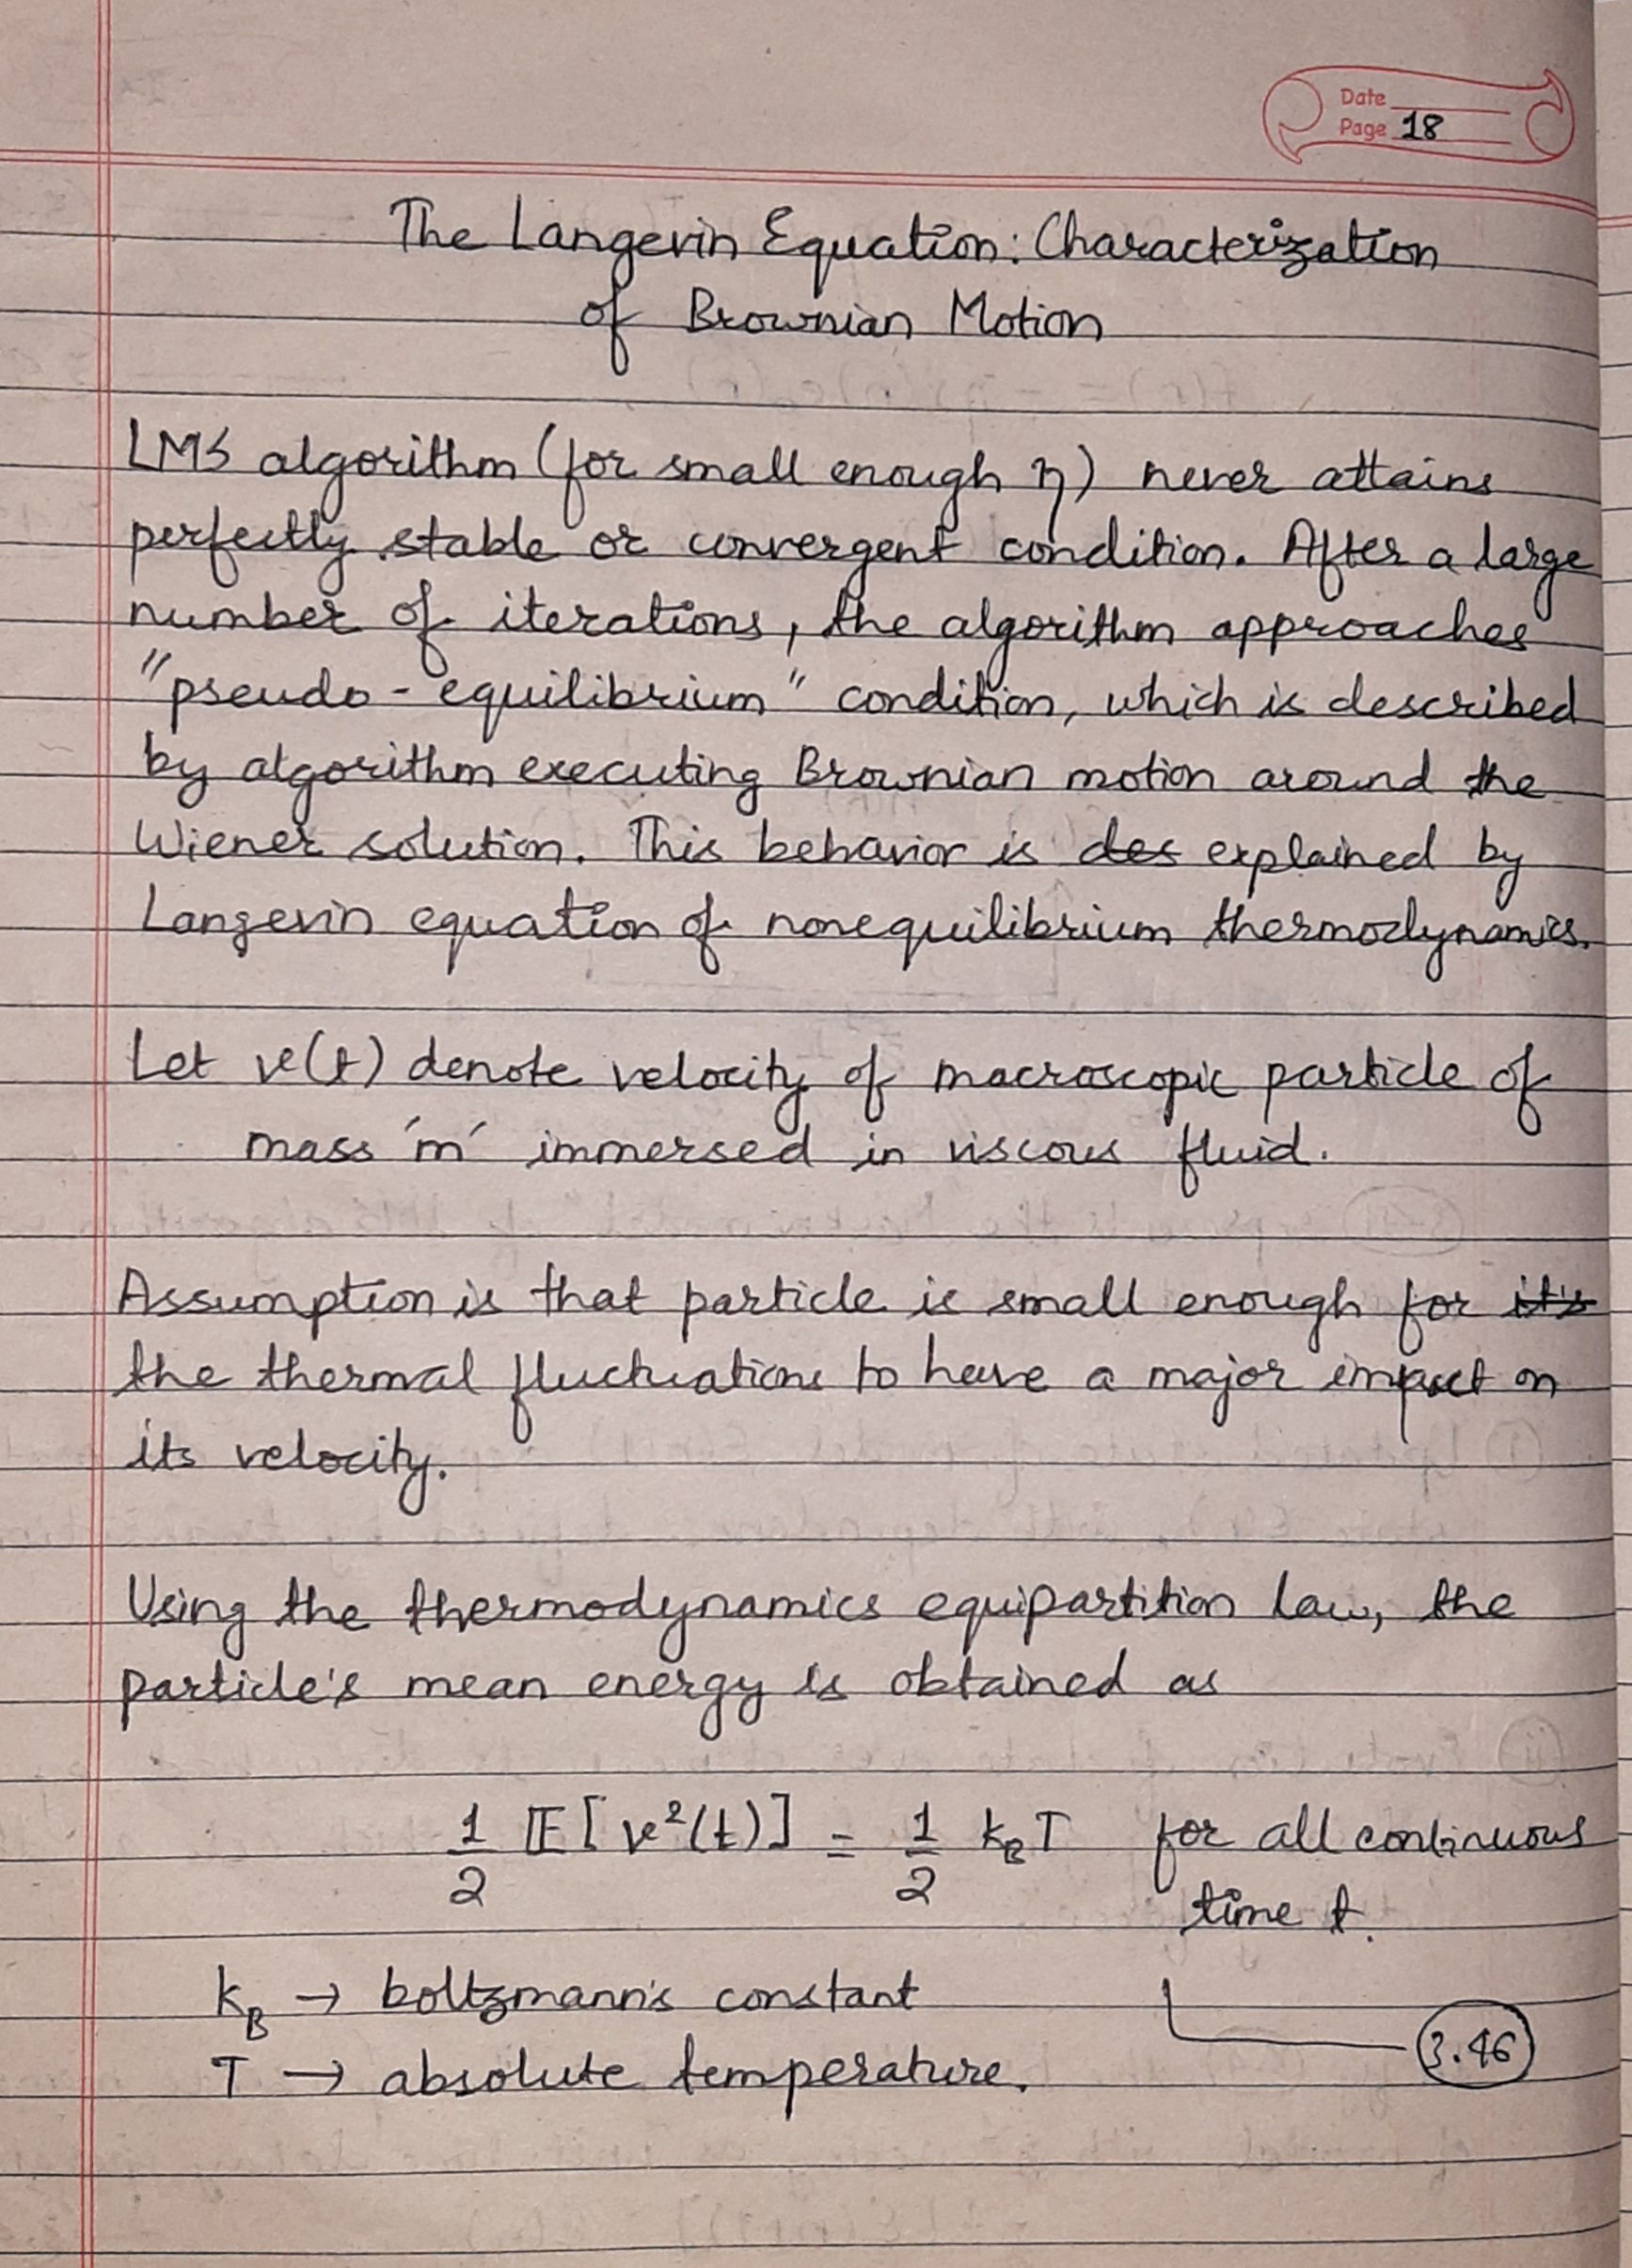 Date
Page 18
The Langevin Equation: Characterization
of Brownian Motion
LMS algorithm (for small enough η) never attains
perfectly stable or convergent condition. After a large
number of iterations, the algorithm approaches
"pseudo-equilibrium" condition, which is described
by algorithm executing Brownian motion around the
Wiener solution. This behavior is des explained by
Langevin equation of nonequilibrium thermodynamics.
Let v(t) denote velocity of macroscopic particle of
mass 'm' immersed in viscous fluid.
Assumption is that particle is small enough for it's
the thermal fluctuations to have a major impact on
its velocity.
Using the thermodynamics equipartition law, the
particle's mean energy is obtained as
1/2 𝔼[v²(t)] = 1/2 k_B T for all continuous
time t.
k_B → boltzmann's constant
T → absolute temperature.
3.46